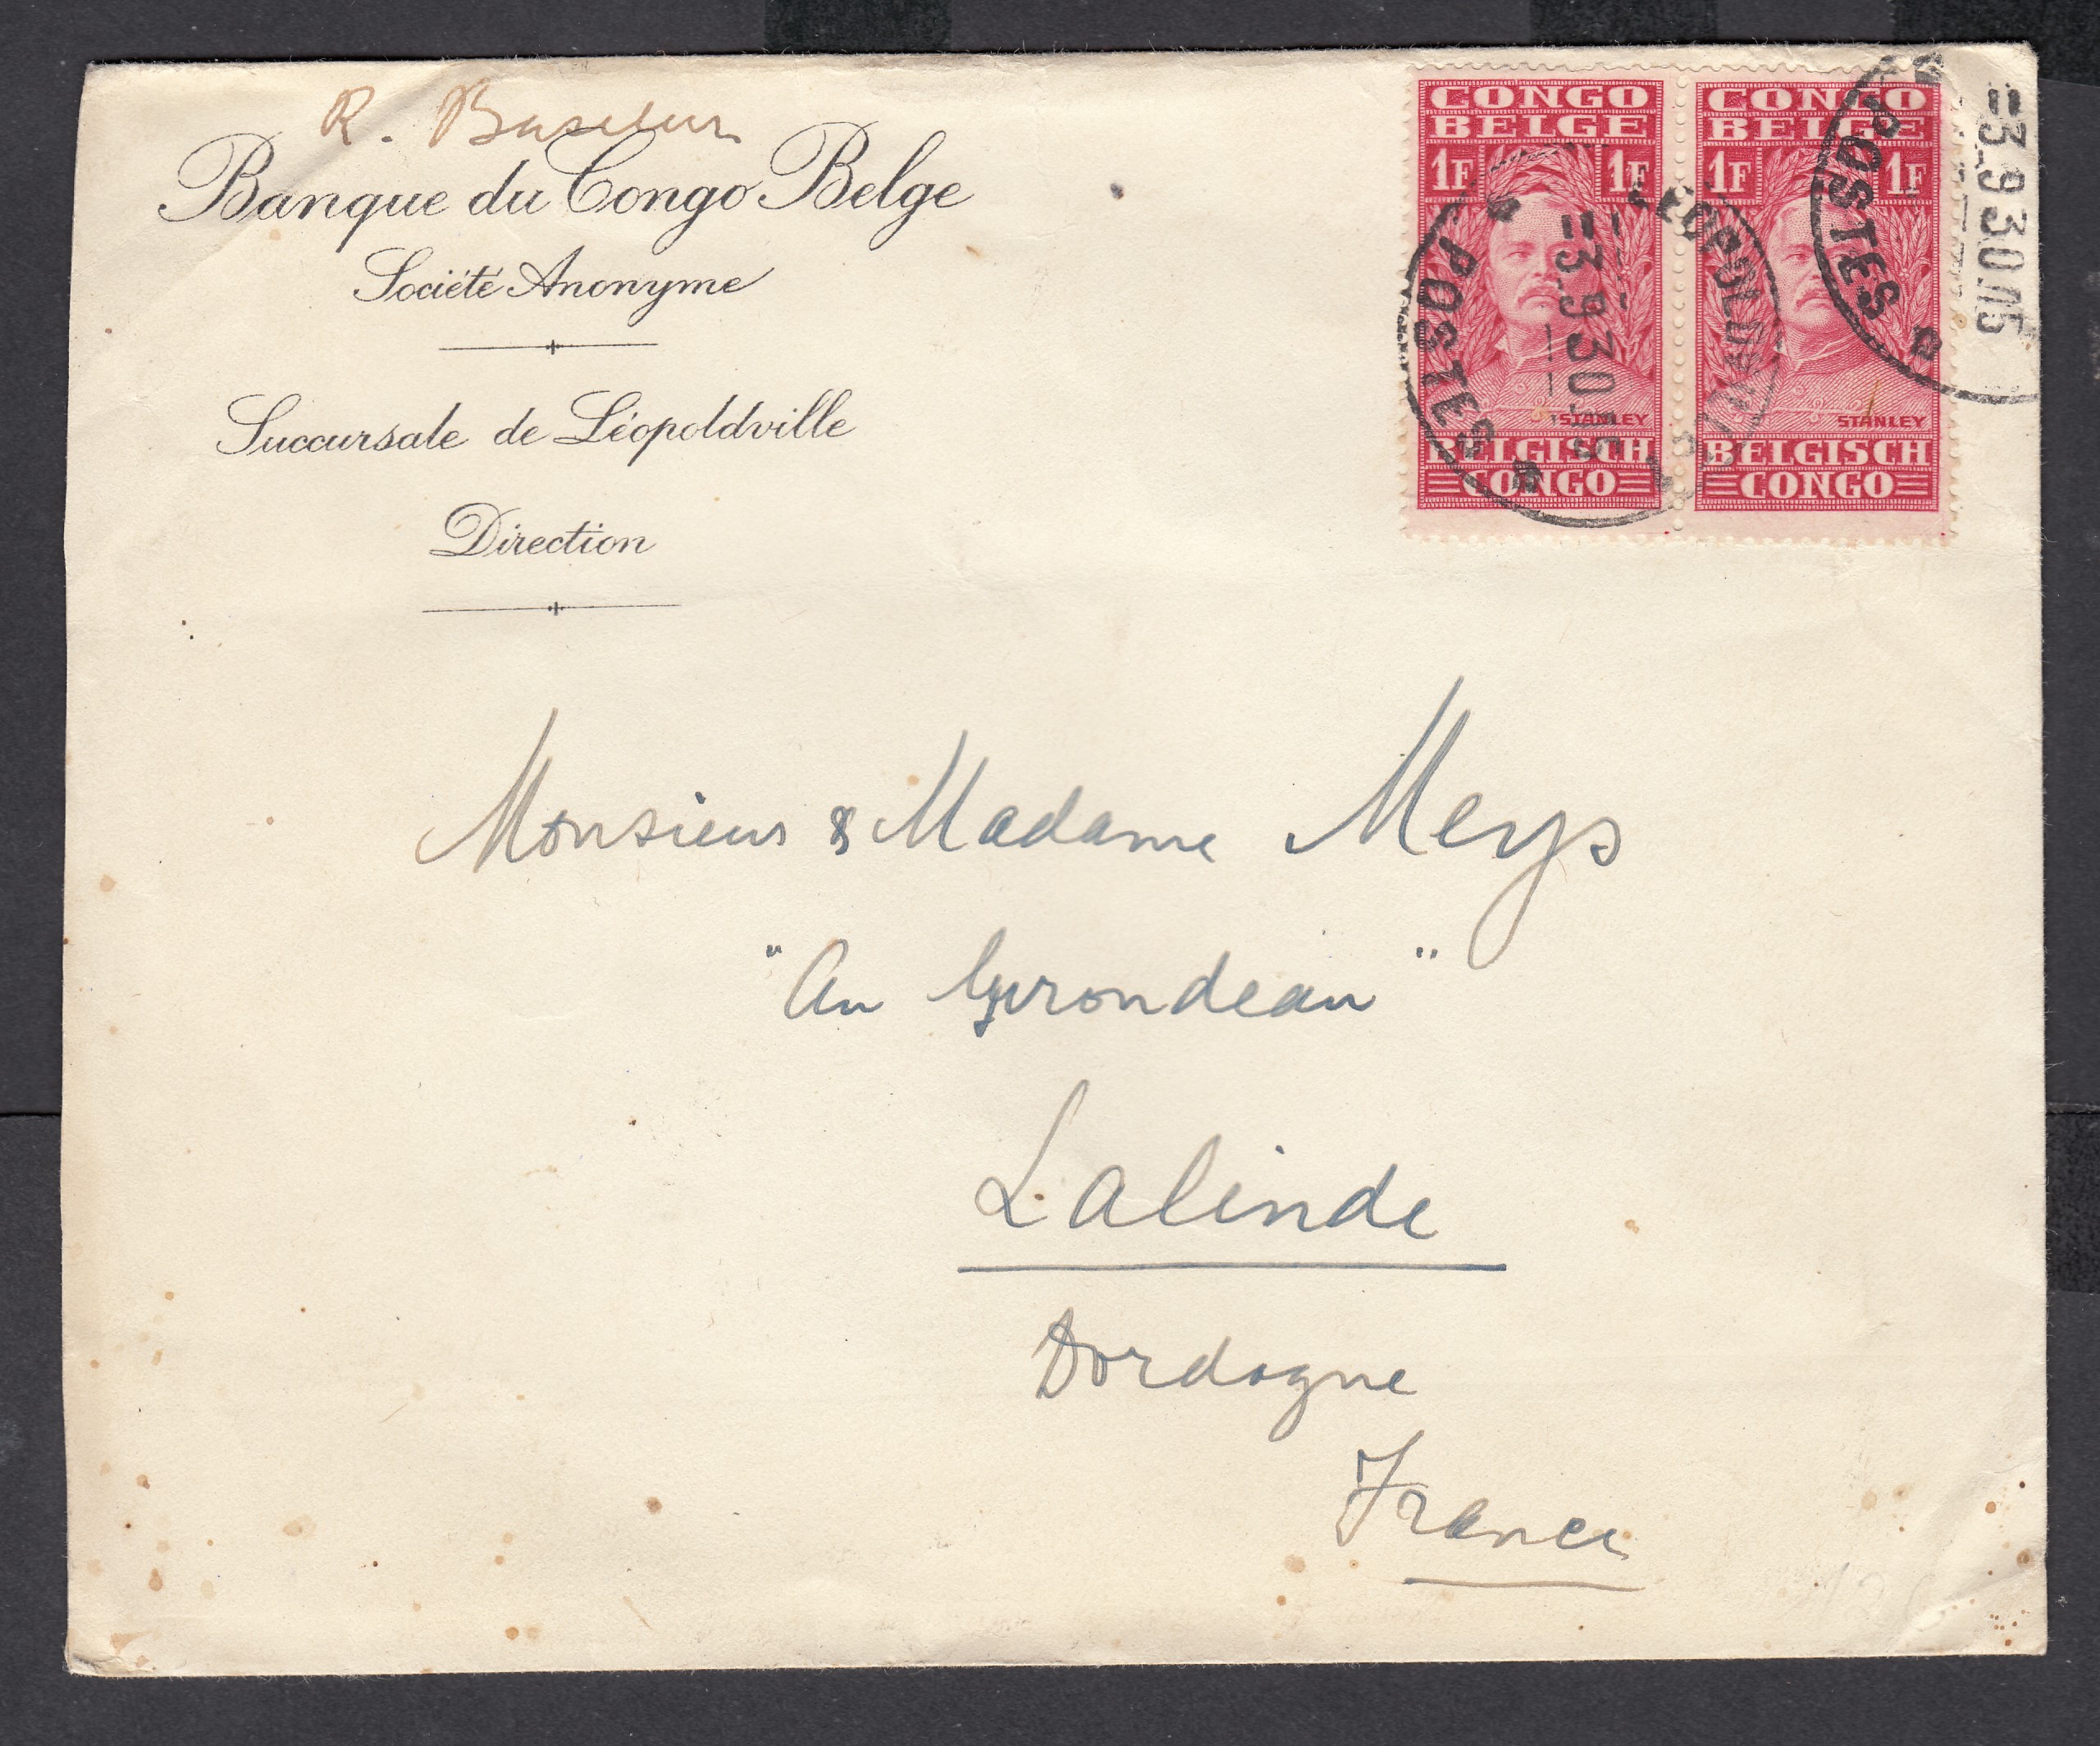 R.
Banque du Congo Belge
Société Anonyme
Succursale de Léopoldville
Direction
CONGO BELGE
1F 1F
STANLEY
BELGISCH CONGO
CONGO BELGE
1F 1F
STANLEY
BELGISCH CONGO
LEOPOLDVILLE 1
=3.-9 30.-15
POSTES
=3.-9 30.-15
POSTES
Monsieur & Madame Meys
"Au Girondeau"
Lalinde
Dordogne
France